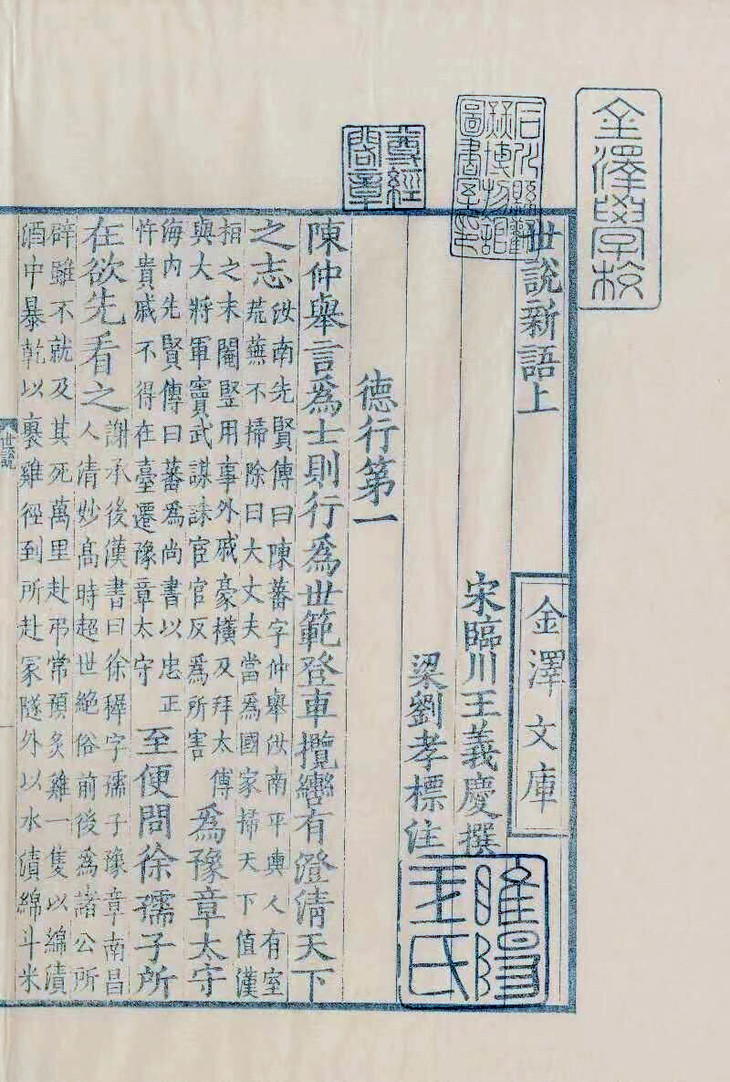 金澤學校
石川縣勸業博物館圖書室印
尊經閣章
世說新語上
金澤文庫
宋臨川王義慶撰
梁劉孝標注
睢陽王氏
德行第一
陳仲舉言爲士則行爲世範登車攬轡有澄清天下
之志
汝南先賢傳曰陳蕃字仲舉汝南平輿人有室
荒蕪不掃除曰大丈夫當爲國家掃天下值漢
桓之末閹豎用事外戚豪橫及拜太傅
與大將軍竇武謀誅宦官反爲所害
爲豫章太守
海内先賢傳曰蕃爲尚書以忠正
忤貴戚不得在臺遷豫章太守
至便問徐孺子所
在欲先看之
謝承後漢書曰徐穉字孺子豫章南昌
人清妙髙時超世絕俗前後爲諸公所
辟雖不就及其死萬里赴弔常預炙雞一隻以綿漬
酒中暴乾以裹雞徑到所赴冢隧外以水漬綿斗米
世說